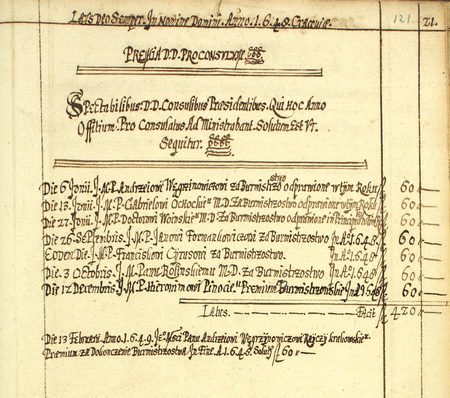 Laus Deo Semper. In Nomine Domini. Anno. 1.6.4.8. Cracoviæ.
121. 21.
PREMIA D.D. PROCONSVLVM
Spectabilibus. D.D. Consulibus Præsidentibus. Qui Hoc Anno
Offitium. Pro Consulatus Ad Ministrabant. Solutum Est Vt
Sequitur.
Die 6 Junij. J.M.P. Andrzeiowi Węgrzinowiczowi za Burmistrzostwo odprawione w tÿm Roku 60
Die 13. Junij. J.M.P. Gabrielowi Ochockie M.D. Za Burmistrzostwo odprawione w tÿm Roku 60
Die 27 Junij. J.M.P. Doctorowi Woinskie M.D. Za Burmistrzostwo odprawione in 60
Die 26 Septembris. J.M.P. Janowi Formankowiczowi Za Burmistrzostwo In A° 1.6.4.8. 60
Eodem Die. J.M.P. Franciskowi Cyrusowi Za Burmistrzostwo. In A° 1.6.4.8. 60
Die. 3 Octobris. J.M. Panu M.D. Za Burmistrzostwo In A° 1.6.4.8. 60
Die 12 Decembris. J.M.P. Hieronimowi Pinocie° Premium Burmistrzowskie In A° 1648 60
Latus. Facit 420
Die 13 Februarij. Anno. 1.6.4.9. Je° Mści Panu Andrzeiowi Węgrzynowiczowi Rajczy Krakowskie°
Præmium za Dokonczenie Burmistrzostwa In Fine. A. 1.6.4.8. 60